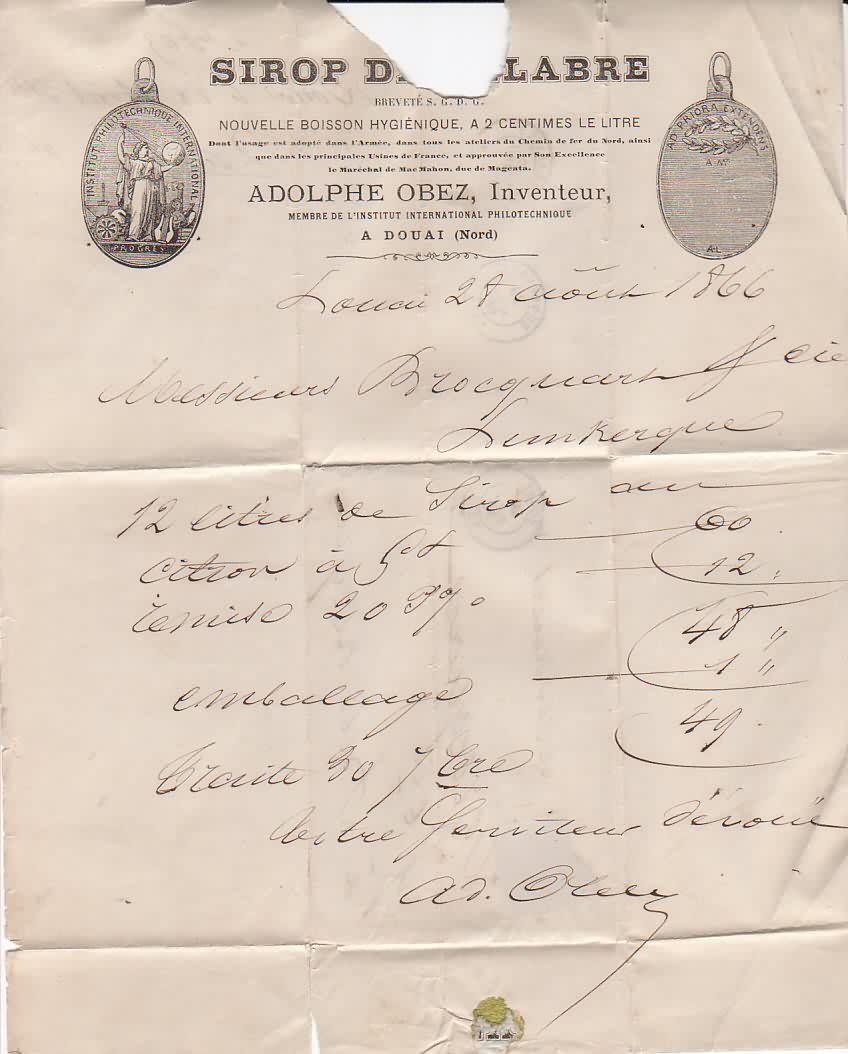 SIROP D LABRE
BREVETÉ S. G. D. G.
NOUVELLE BOISSON HYGIÉNIQUE, A 2 CENTIMES LE LITRE
Dont l'usage est adopté dans l'Armée, dans tous les ateliers du Chemin de fer du Nord, ainsi
que dans les principales Usines de France, et approuvée par Son Excellence
le Maréchal de Mac Mahon, duc de Magenta.
ADOLPHE OBEZ, Inventeur,
MEMBRE DE L'INSTITUT INTERNATIONAL PHILOTECHNIQUE
A DOUAI (Nord)
INSTITUT PHILOTECHNIQUE INTERNATIONAL
PROGRÈS
AD PRIORA EXTENDENT
A Mr
A.L
Douai 28 août 1866
Messieurs Brocquart & Cie
Dunkerque
12 litres de Sirop au
citron à 5f 60
remise 20 P% 12 "
48 "
emballage 1 "
49
Traite 30 7bre
Votre Serviteur dévoué
Ad. Obez